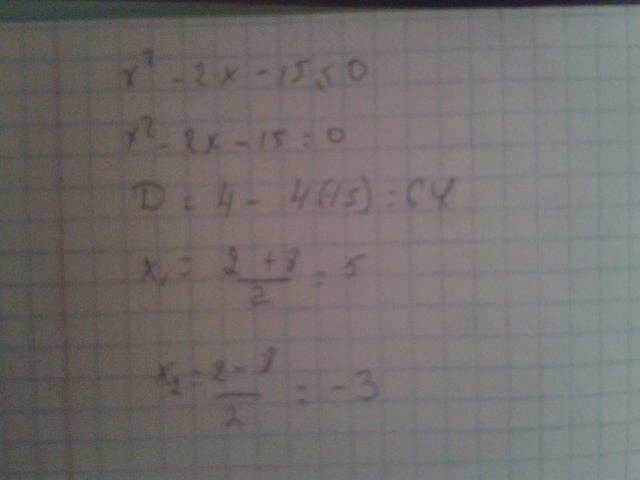 x² - 2x - 15 ≤ 0
x² - 2x - 15 = 0
D = 4 - 4(-15) = 64
x₁ = (2 + 8)/2 = 5
x₂ = (2 - 8)/2 = -3